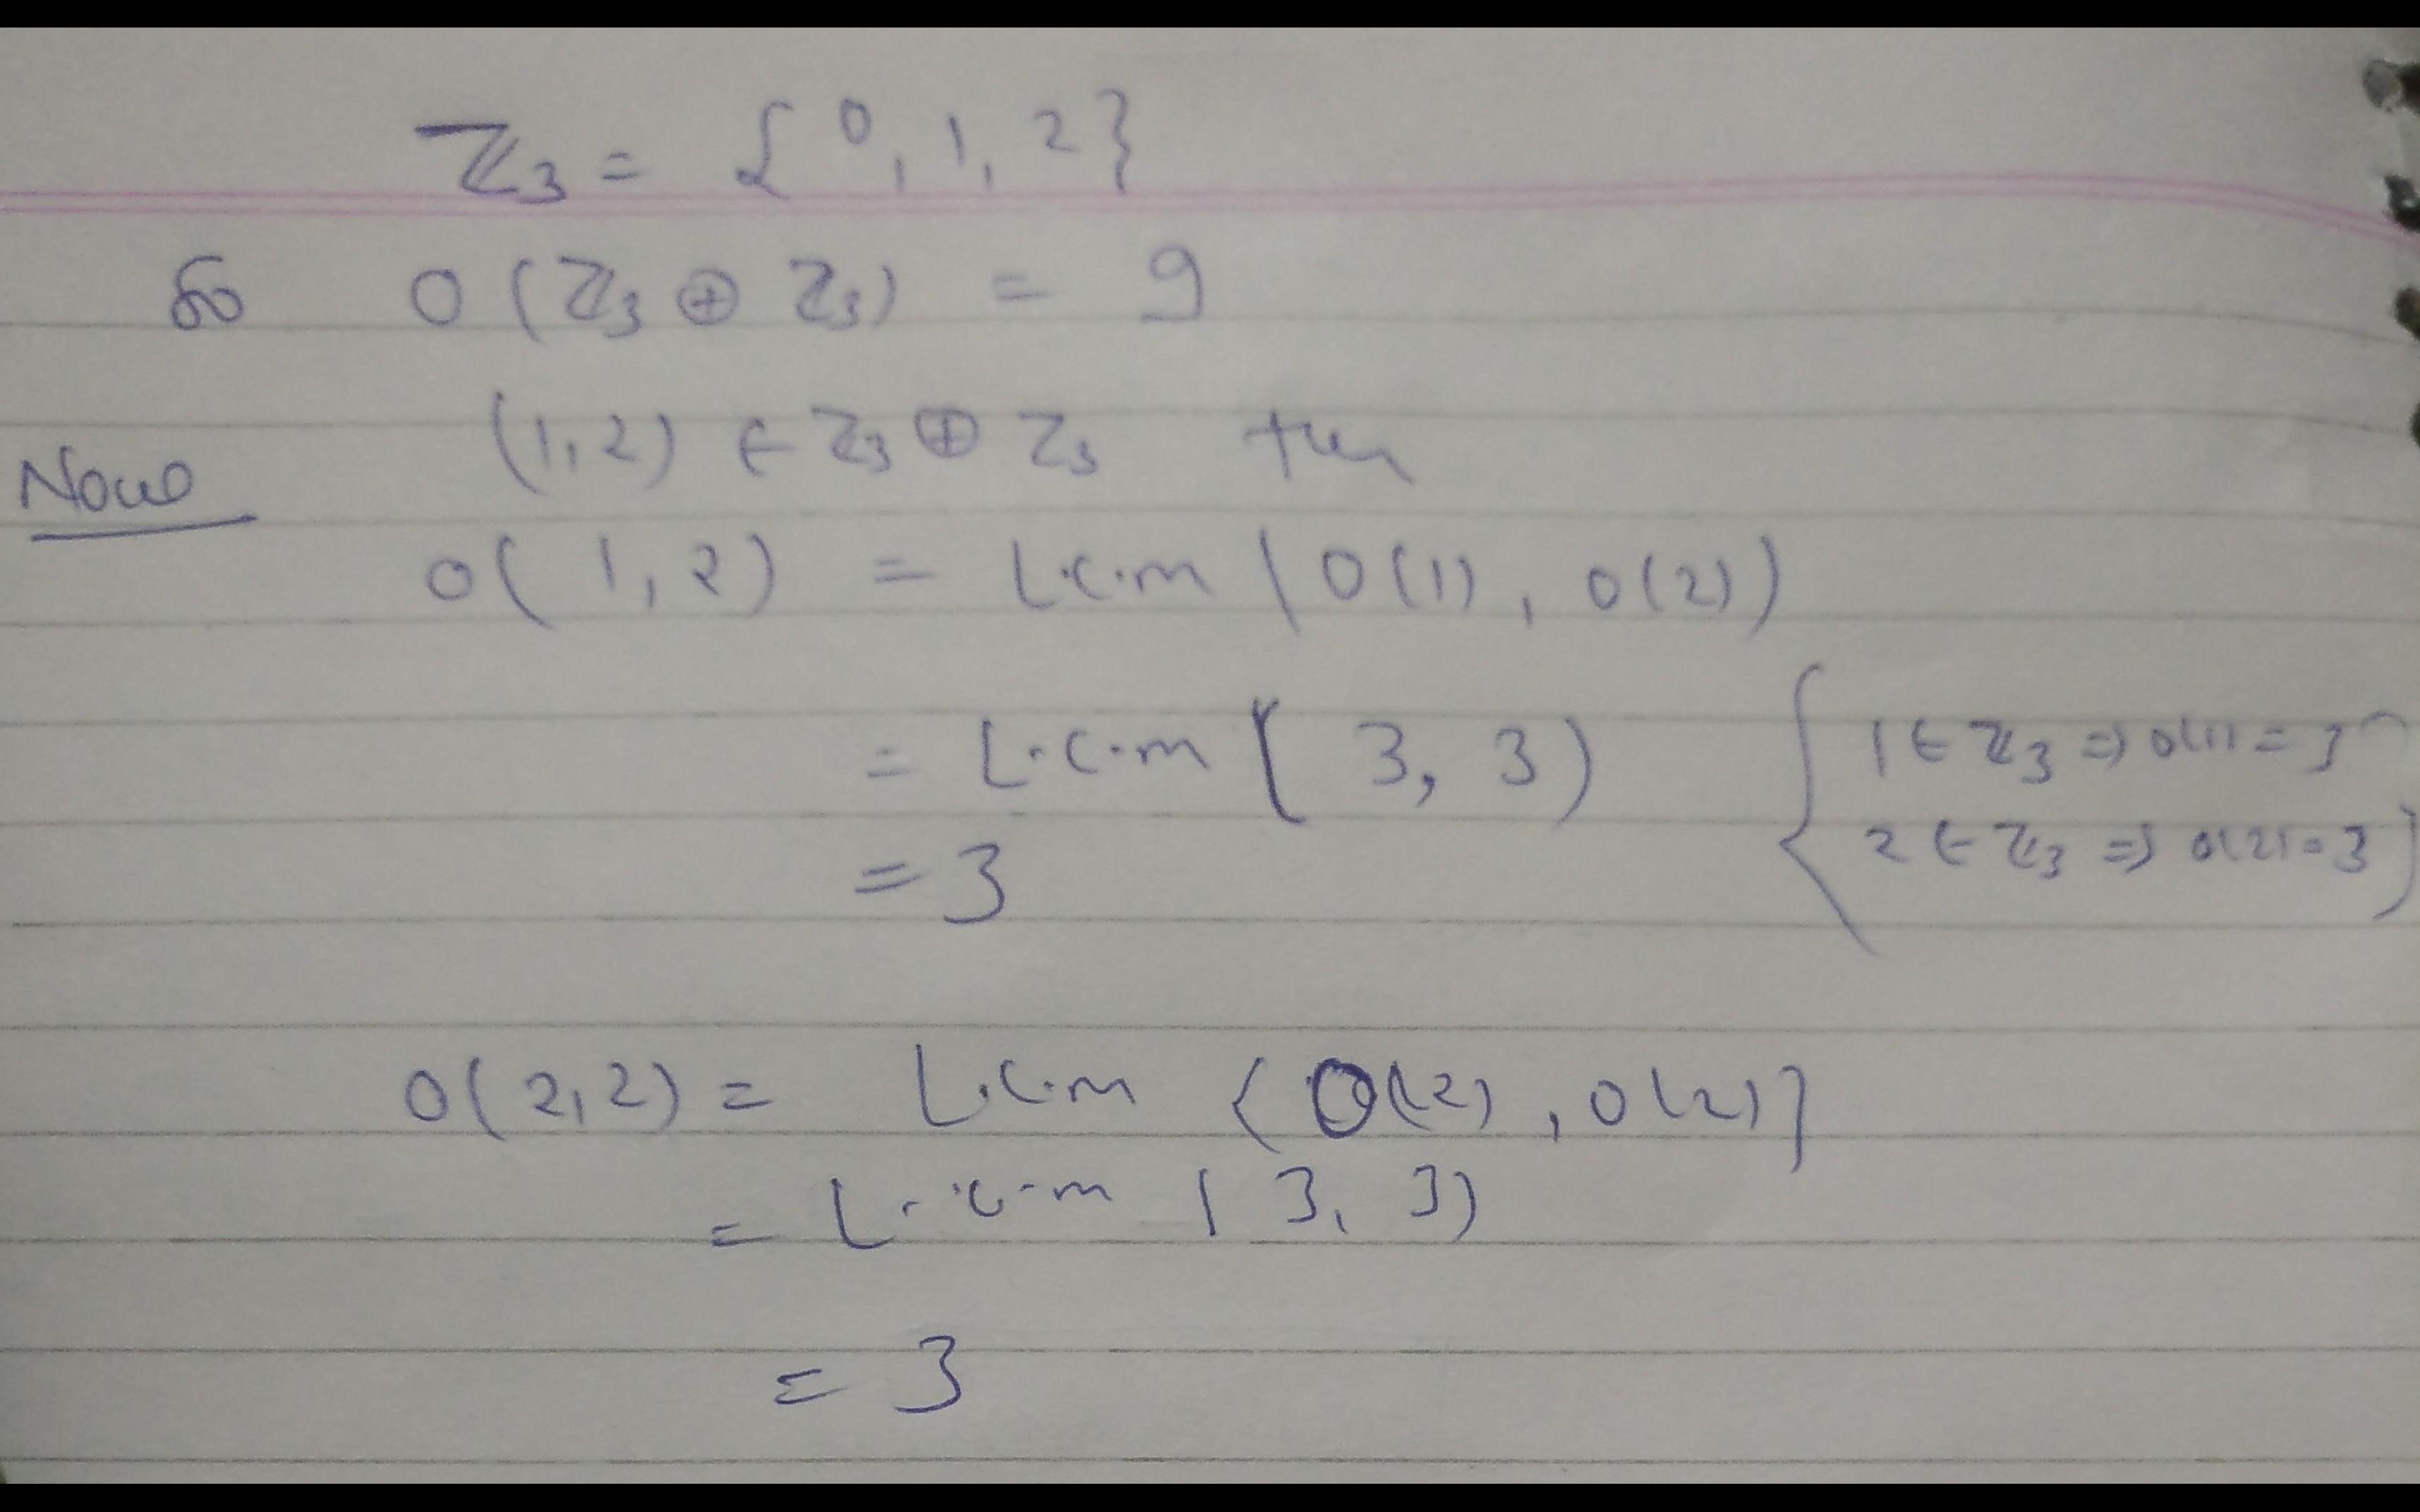 ℤ₃ = {0, 1, 2}
So O(ℤ₃ ⊕ ℤ₃) = 9
Now (1,2) ∈ ℤ₃ ⊕ ℤ₃ then
O(1,2) = L.C.m (O(1), O(2))
= L.C.m (3, 3) {1 ∈ ℤ₃ ⇒ O(1) = 3
= 3 2 ∈ ℤ₃ ⇒ O(2) = 3}
O(2,2) = L.C.m {O(2), O(2)}
= L.C.m (3, 3)
= 3